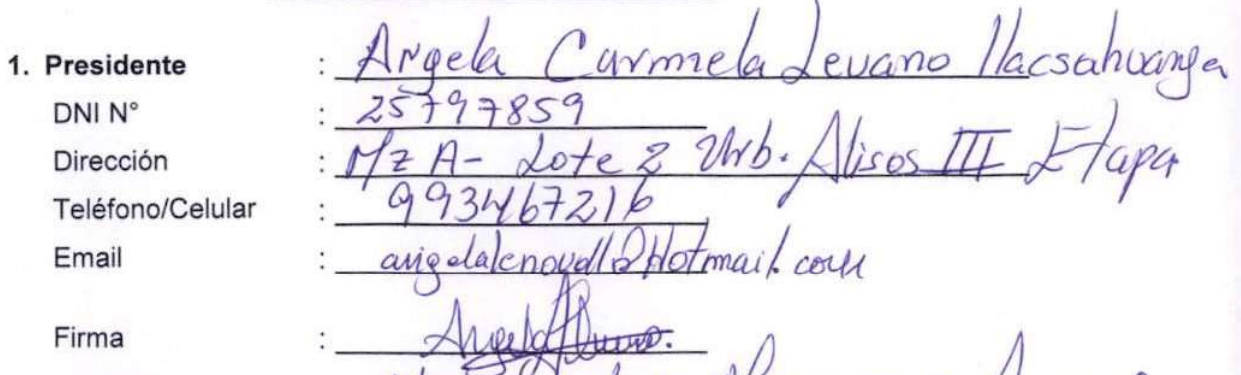 1. Presidente : Angela Carmela Levano Llacsahuanga
DNI N° : 25797859
Dirección : Mz A- Lote 2 Urb. Alisos III Etapa
Teléfono/Celular : 993467216
Email :
Firma :